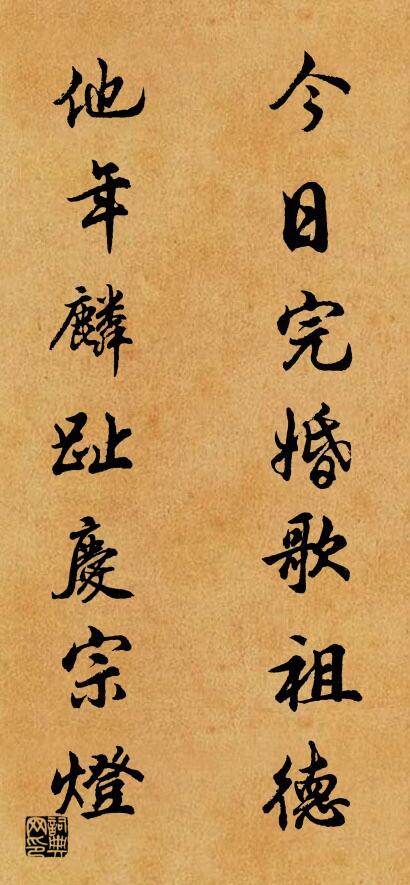 今日完婚歌祖德
他年麟趾慶宗燈
詞典
网印